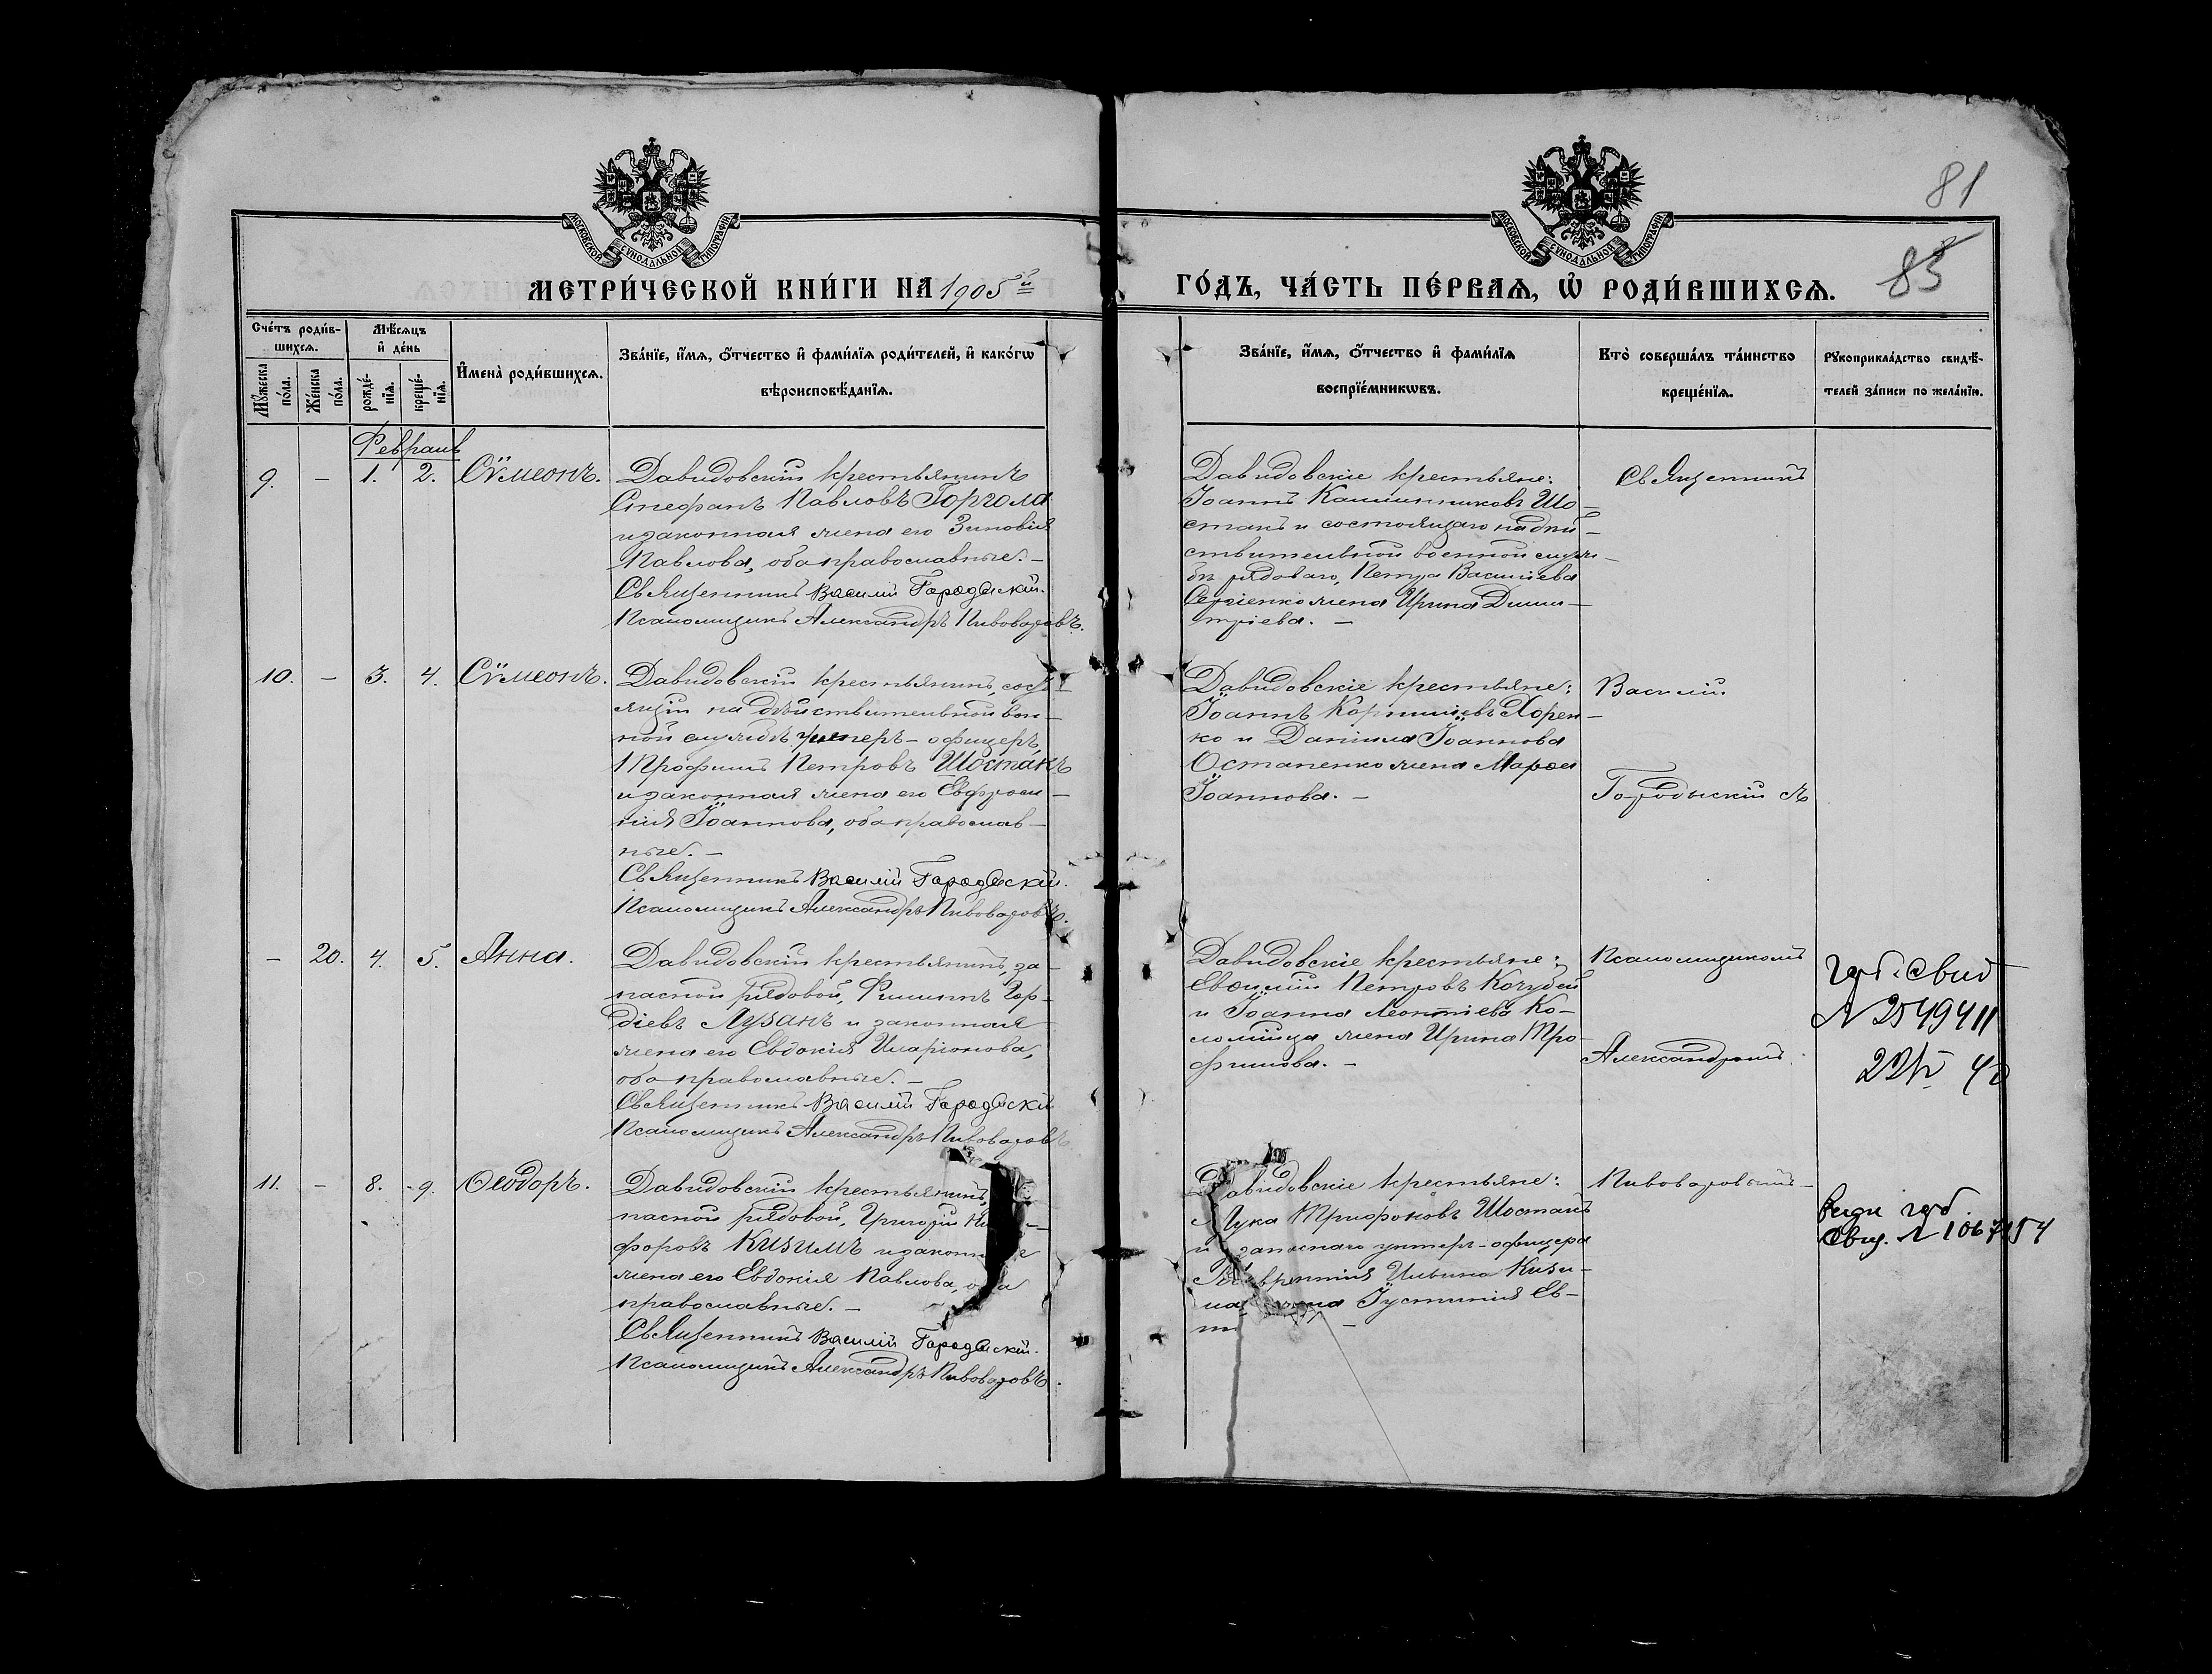 81
83
МОСКОВСКОЙ СѴНОДАЛЬНОЙ ТИПОГРАФІИ
МОСКОВСКОЙ СѴНОДАЛЬНОЙ ТИПОГРАФІИ
МЕТРИ́ЧЕСКОЙ КНИ́ГИ НА 1905й
ГО́ДЪ, ЧА́СТЬ ПЕ́РВАѦ, Ѽ РОДИ́ВШИХСѦ.
Сче́тъ роди́в-
шихсѧ.
Мꙋ́жеска по́ла.
Же́нска по́ла.
Мѣ́сѧцъ
и҆ де́нь
рожде́-
нїѧ.
креще́-
нїѧ.
И҆мена̀ роди́вшихсѧ.
Зва́нїе, и҆́мѧ, ѻ҆́тчество и҆ фами́лїѧ роди́телей, и҆ како́гѡ
вѣроисповѣ́данїѧ.
Зва́нїе, и҆́мѧ, ѻ҆́тчество и҆ фами́лїѧ
воспрїе́мникѡвъ.
Кто̀ соверша́лъ та́инство
креще́нїѧ.
Рꙋкоприкла́дство свидѣ́-
телей за́писи по жела́нїю.
Февраль
9. – 1. 2. Сѷмеонъ.
Давидовскій крестьянинъ
Стефанъ Павловъ Горгола
и законная жена его Зиновія
Павлова, оба православные. –
Священникъ Василій Городыскій.
Псаломщикъ Александръ Пивоваровъ.
Давидовскіе крестьяне:
Іоаннъ Шо-
стакъ и состоящаго на дѣй-
ствительной военной служ-
бѣ рядоваго, Петра Васильева
Сергіенко жена Ирина Дими-
тріева. –
Священникъ
10. – 3. 4. Сѷмеонъ.
Давидовскій крестьянинъ, состо-
ящій на дѣйствительной воен-
ной службѣ унтеръ-офицеръ,
Трофимъ Петровъ Шостакъ
и законная жена его Евфроси-
нія Іоаннова, оба православ-
ные. –
Священникъ Василій Городыскій.
Псаломщикъ Александръ Пивоваровъ.
Давидовскіе крестьяне:
Іоаннъ Корниліевъ Хорен-
ко и Даніила Іоаннова
Остапенко жена Марѳа
Іоаннова. –
Василій
Городыскій съ
– 20. 4. 5. Анна.
Давидовскій крестьянинъ, за-
пасной рядовой, Филиппъ Гор-
діевъ Лузанъ и законная
жена его Евдокія Иларіонова,
оба православные. –
Священникъ Василій Городыскій
Псаломщикъ Александръ Пивоваровъ
Давидовскіе крестьяне:
Евѳимій Петровъ Кочубей
и Іоанна Леонтіева Ко-
ломійца жена Ирина Тро-
фимова. –
Псаломщикомъ
Александромъ
свид
№ 2549411
11. – 8. 9. Ѳеодоръ.
Давидовскій крестьянинъ,
пасной рядовой, Григорій Ни
форовъ Кизимъ и законн
жена его Евдокія Павлова, о а
православные. –
Священникъ Василій Городыскій.
Псаломщикъ Александръ Пивоваровъ.
Давидовскіе крестьяне:
Лука Трифоновъ Шостакъ
и запаснаго унтеръ-офицера
Лаврентія Ильина Кизи-
ма жена Іустинія Ев-
Пивоваровымъ